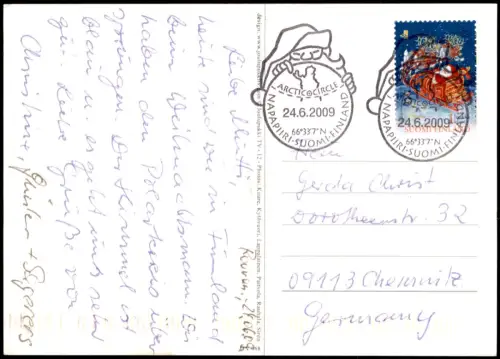 Liebe Mutti,
heute sind wir in Finnland
beim Weihnachtsmann. Wir
haben den Polarkreis über
sprungen. Der Himmel ist
blau u. es geht uns sehr
gut. Liebe Grüße von
Christine,
ARCTIC CIRCLE
24.6.2009
66°33'7"N
NAPAPIIRI-SUOMI-FINLAND
ARCTIC CIRCLE
24.6.2009
66°33'7"N
NAPAPIIRI-SUOMI-FINLAND
SUOMI FINLAND
Gerda Christ
Dorotheenstr. 32
09113 Chemnitz
Germany